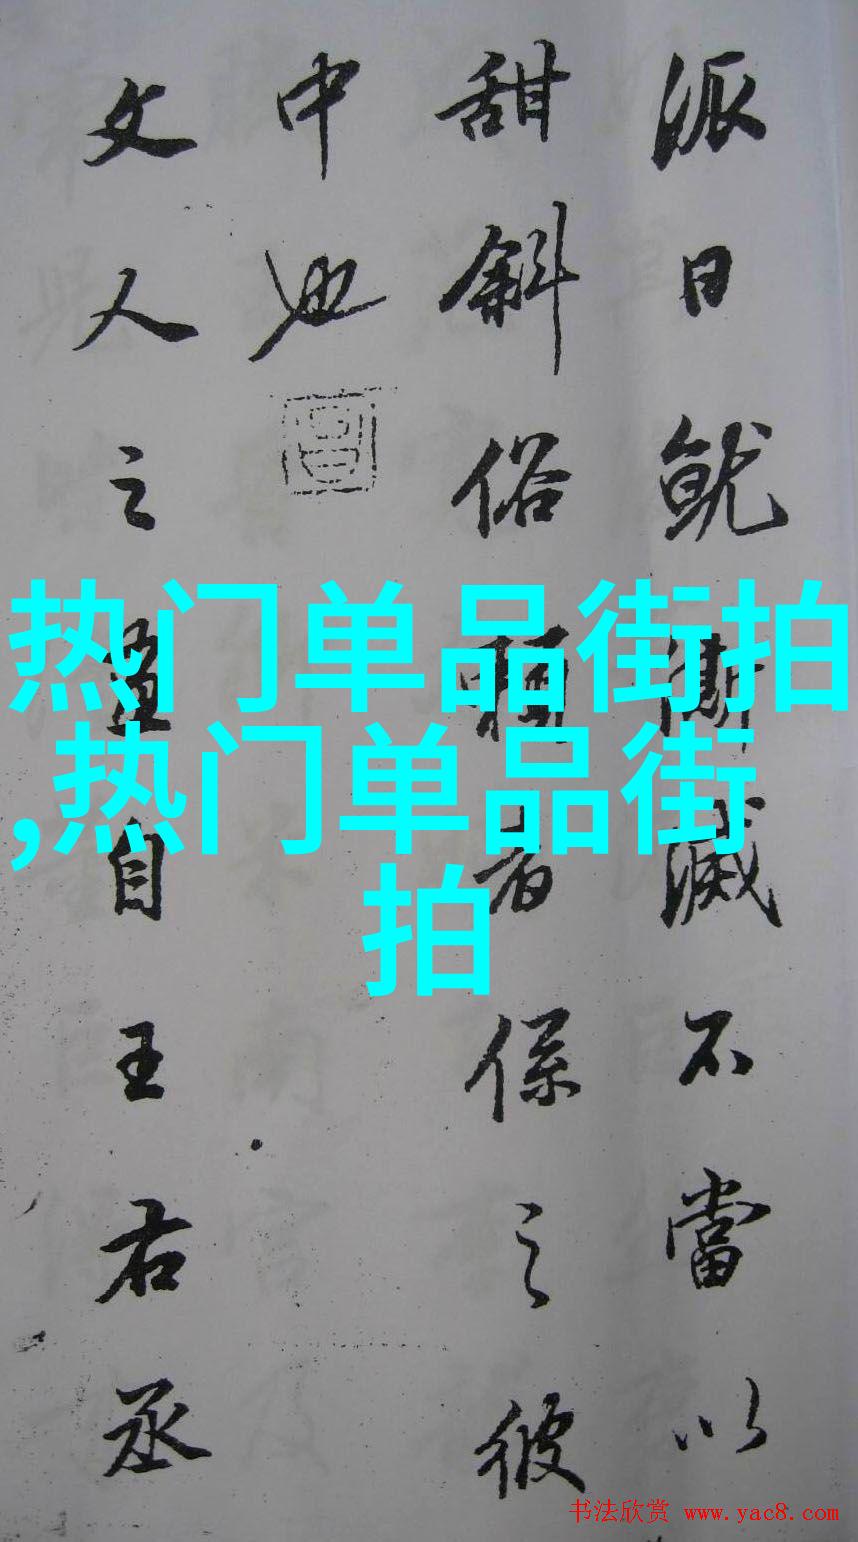 派日就澌滅不當以
甜斜俗賴者係之彼
中也
文人之畫自王右丞
热门单品街拍
,热门单品街
拍
书法欣赏 www.yac8.com